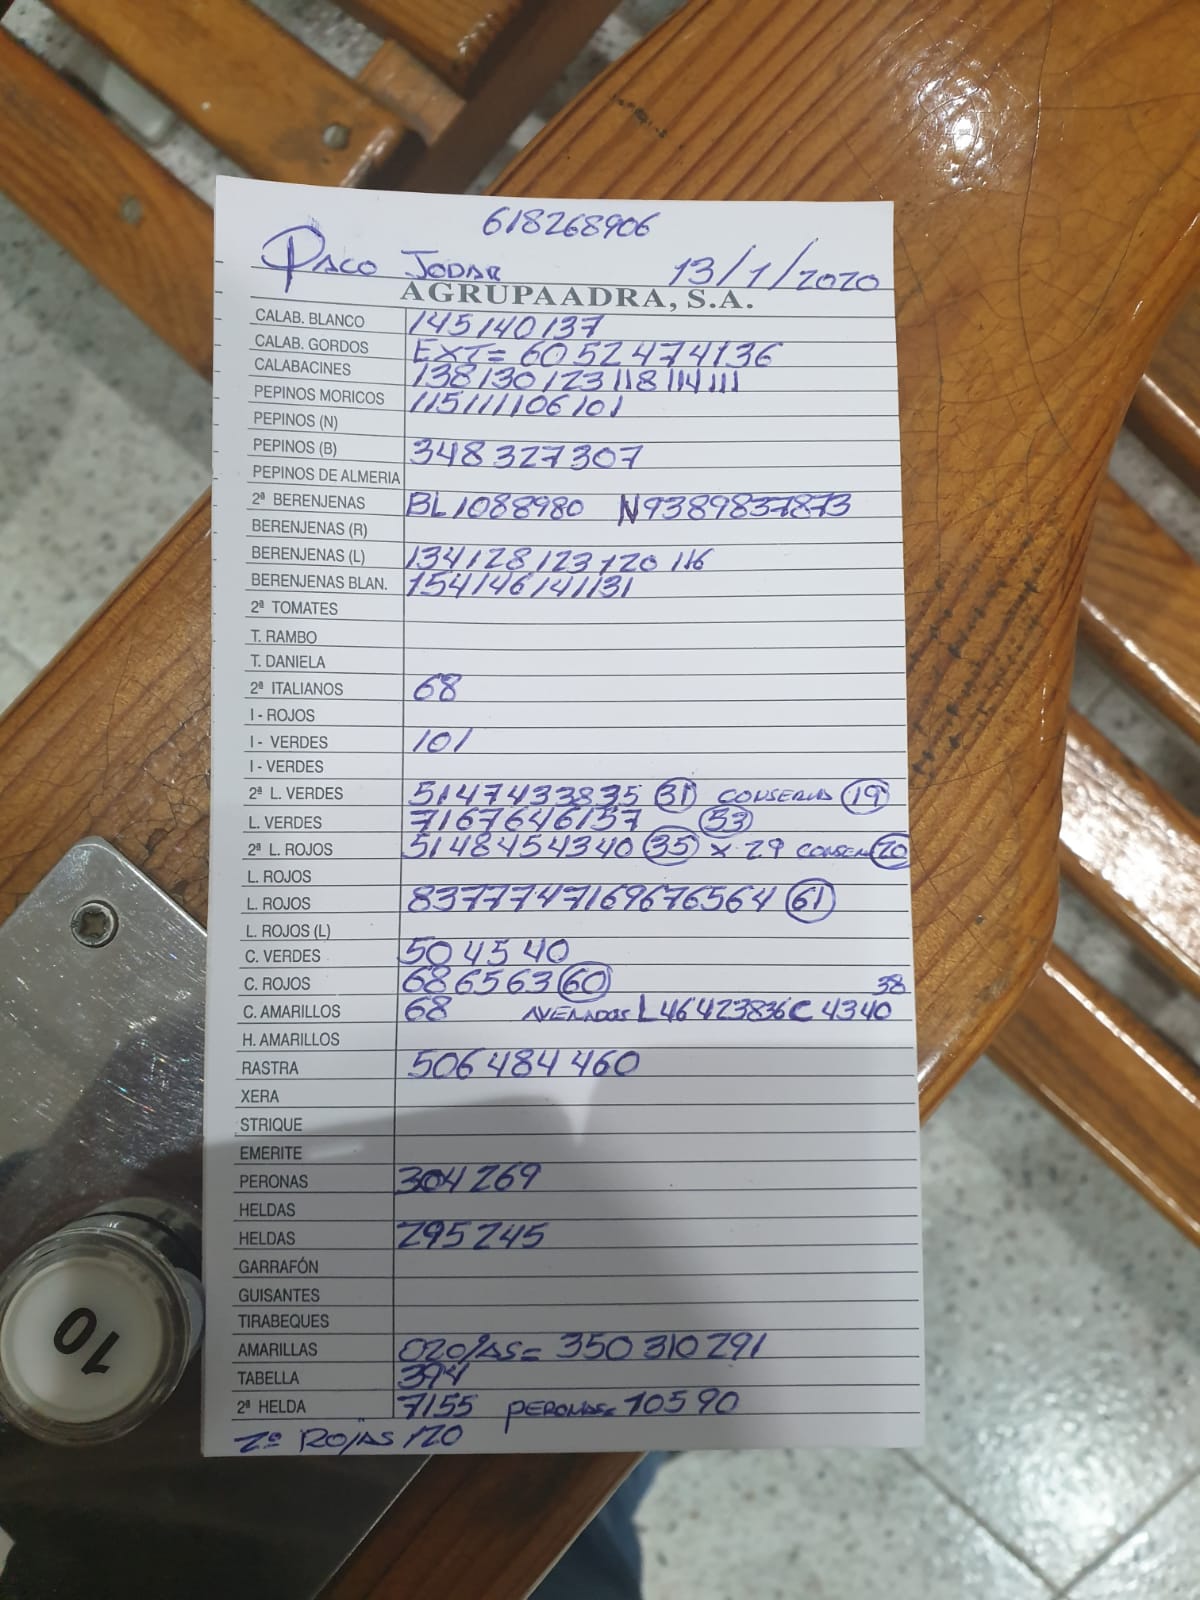 618268906
PACO JODAR 13/1/2020
AGRUPAADRA, S.A.
CALAB. BLANCO 145 140 137
CALAB. GORDOS EXT= 60 52 47 41 36
CALABACINES 138 130 123 118 114 111
PEPINOS MORICOS 115 111 106 101
PEPINOS (N)
PEPINOS (B) 348 327 307
PEPINOS DE ALMERIA
2ª BERENJENAS BL 108 89 80 N 93 89 83 78 73
BERENJENAS (R)
BERENJENAS (L) 134 128 123 120 116
BERENJENAS BLAN. 154 146 141 131
2ª TOMATES
T. RAMBO
T. DANIELA
2ª ITALIANOS 68
I - ROJOS
I - VERDES 101
I - VERDES
2ª L. VERDES 51 47 43 38 35 31 CONSERVAS 19
L. VERDES 71 67 64 61 57 53
2ª L. ROJOS 51 48 45 43 40 35 x 29 CONSER 20
L. ROJOS
L. ROJOS 83 77 74 71 69 67 65 64 61
L. ROJOS (L)
C. VERDES 50 45 40
C. ROJOS 68 65 63 60 38
C. AMARILLOS 68 AVERADOS L 46 42 38 36 C 43 40
H. AMARILLOS
RASTRA 506 484 460
XERA
STRIQUE
EMERITE
PERONAS 304 269
HELDAS
HELDAS 295 245
GARRAFÓN
GUISANTES
TIRABEQUES
AMARILLAS ROJAS= 350 310 291
TABELLA 394
2ª HELDA 71 55 PERONAS= 105 90
2ª ROJAS 120
10